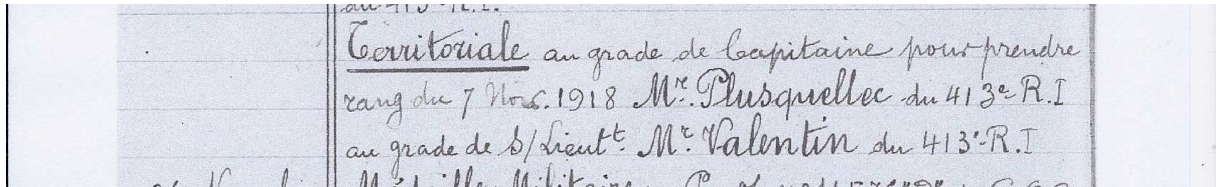 du 413e R.I.
Territoriale au grade de Capitaine pour prendre
rang du 7 Nov. 1918 Mr. Plusquellec du 413e R.I
au grade de S/Lieutt. Mr. Valentin du 413e R.I
Médaille Militaire